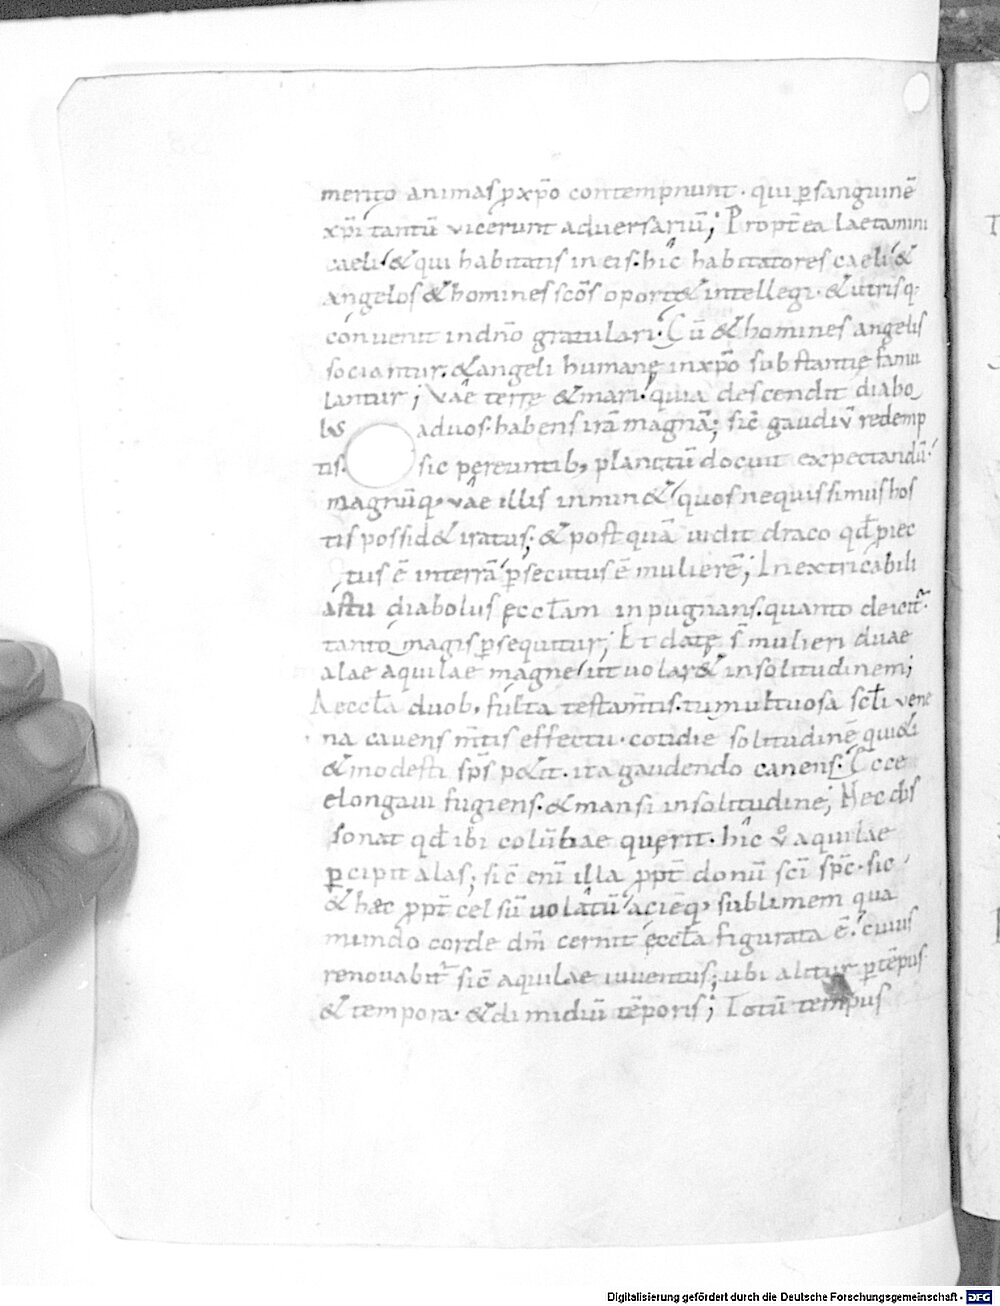 merito animas ꝓ xp̄o contempnunt · qui ꝑ sanguinē
xp̄i tantū vicerunt adversariū; Propt̄ea laetamini
caeli · & qui habitatis in eis · hic̄ habitatores caeli &
angelos & homines sc̄os oport& intellegi · & utrisq·
convenit in dn̄o gratulari · Cū & homines angelis
sociantur · & angeli humanę in xp̄o substantię famu
lantur; Vae terrę & mari · quia descendit diabo
lus ad vos · habens irā magnā; sic̄ gaudiū redemp
tis · sic pereuntib; planctū docuit expectandū ·
magnūq· vae illis inmin& quos nequissimus hos
tis possid& iratus; & postquā vidit draco qd̄ proiec
tus ē in terrā ꝑsecutus ē mulierē; Inextricabili
astu diabolus ęccl̄am inpugnans · quanto deicit̄ ·
tanto magis ꝑsequitur; Et datę s̄ mulieri duae
alae aquilae magnę · ut volar& in solitudinem;
Aeccl̄a duob; fulta testam̄tis · tumultuosa scl̄i vene
na cavens m̄tis effectu · cotidie solitudinē qui&i
& modesti sp̄s p&it · ita gaudendo canens · Ecce
elongavi fugiens · & mansi in solitudine; Nec obs
sonat qd̄ ibi colūbae querit · hic̄ v̄ aquilae
ꝑcipit alas; sic̄ eni illa ꝓpt̄ donū sc̄i sp̄c · sic
& haec ꝓpt̄ celsū volatū · aciēq; sublimem qua
mundo corde dm̄ cernit ęccl̄a figurata ē · cuius
renovabit̄ sic̄ aquilae iuventus; ubi alitur ꝑ tēpus
& tempora · & dimidiū tēporis; Totū tempus
Digitalisierung gefördert durch die Deutsche Forschungsgemeinschaft - DFG